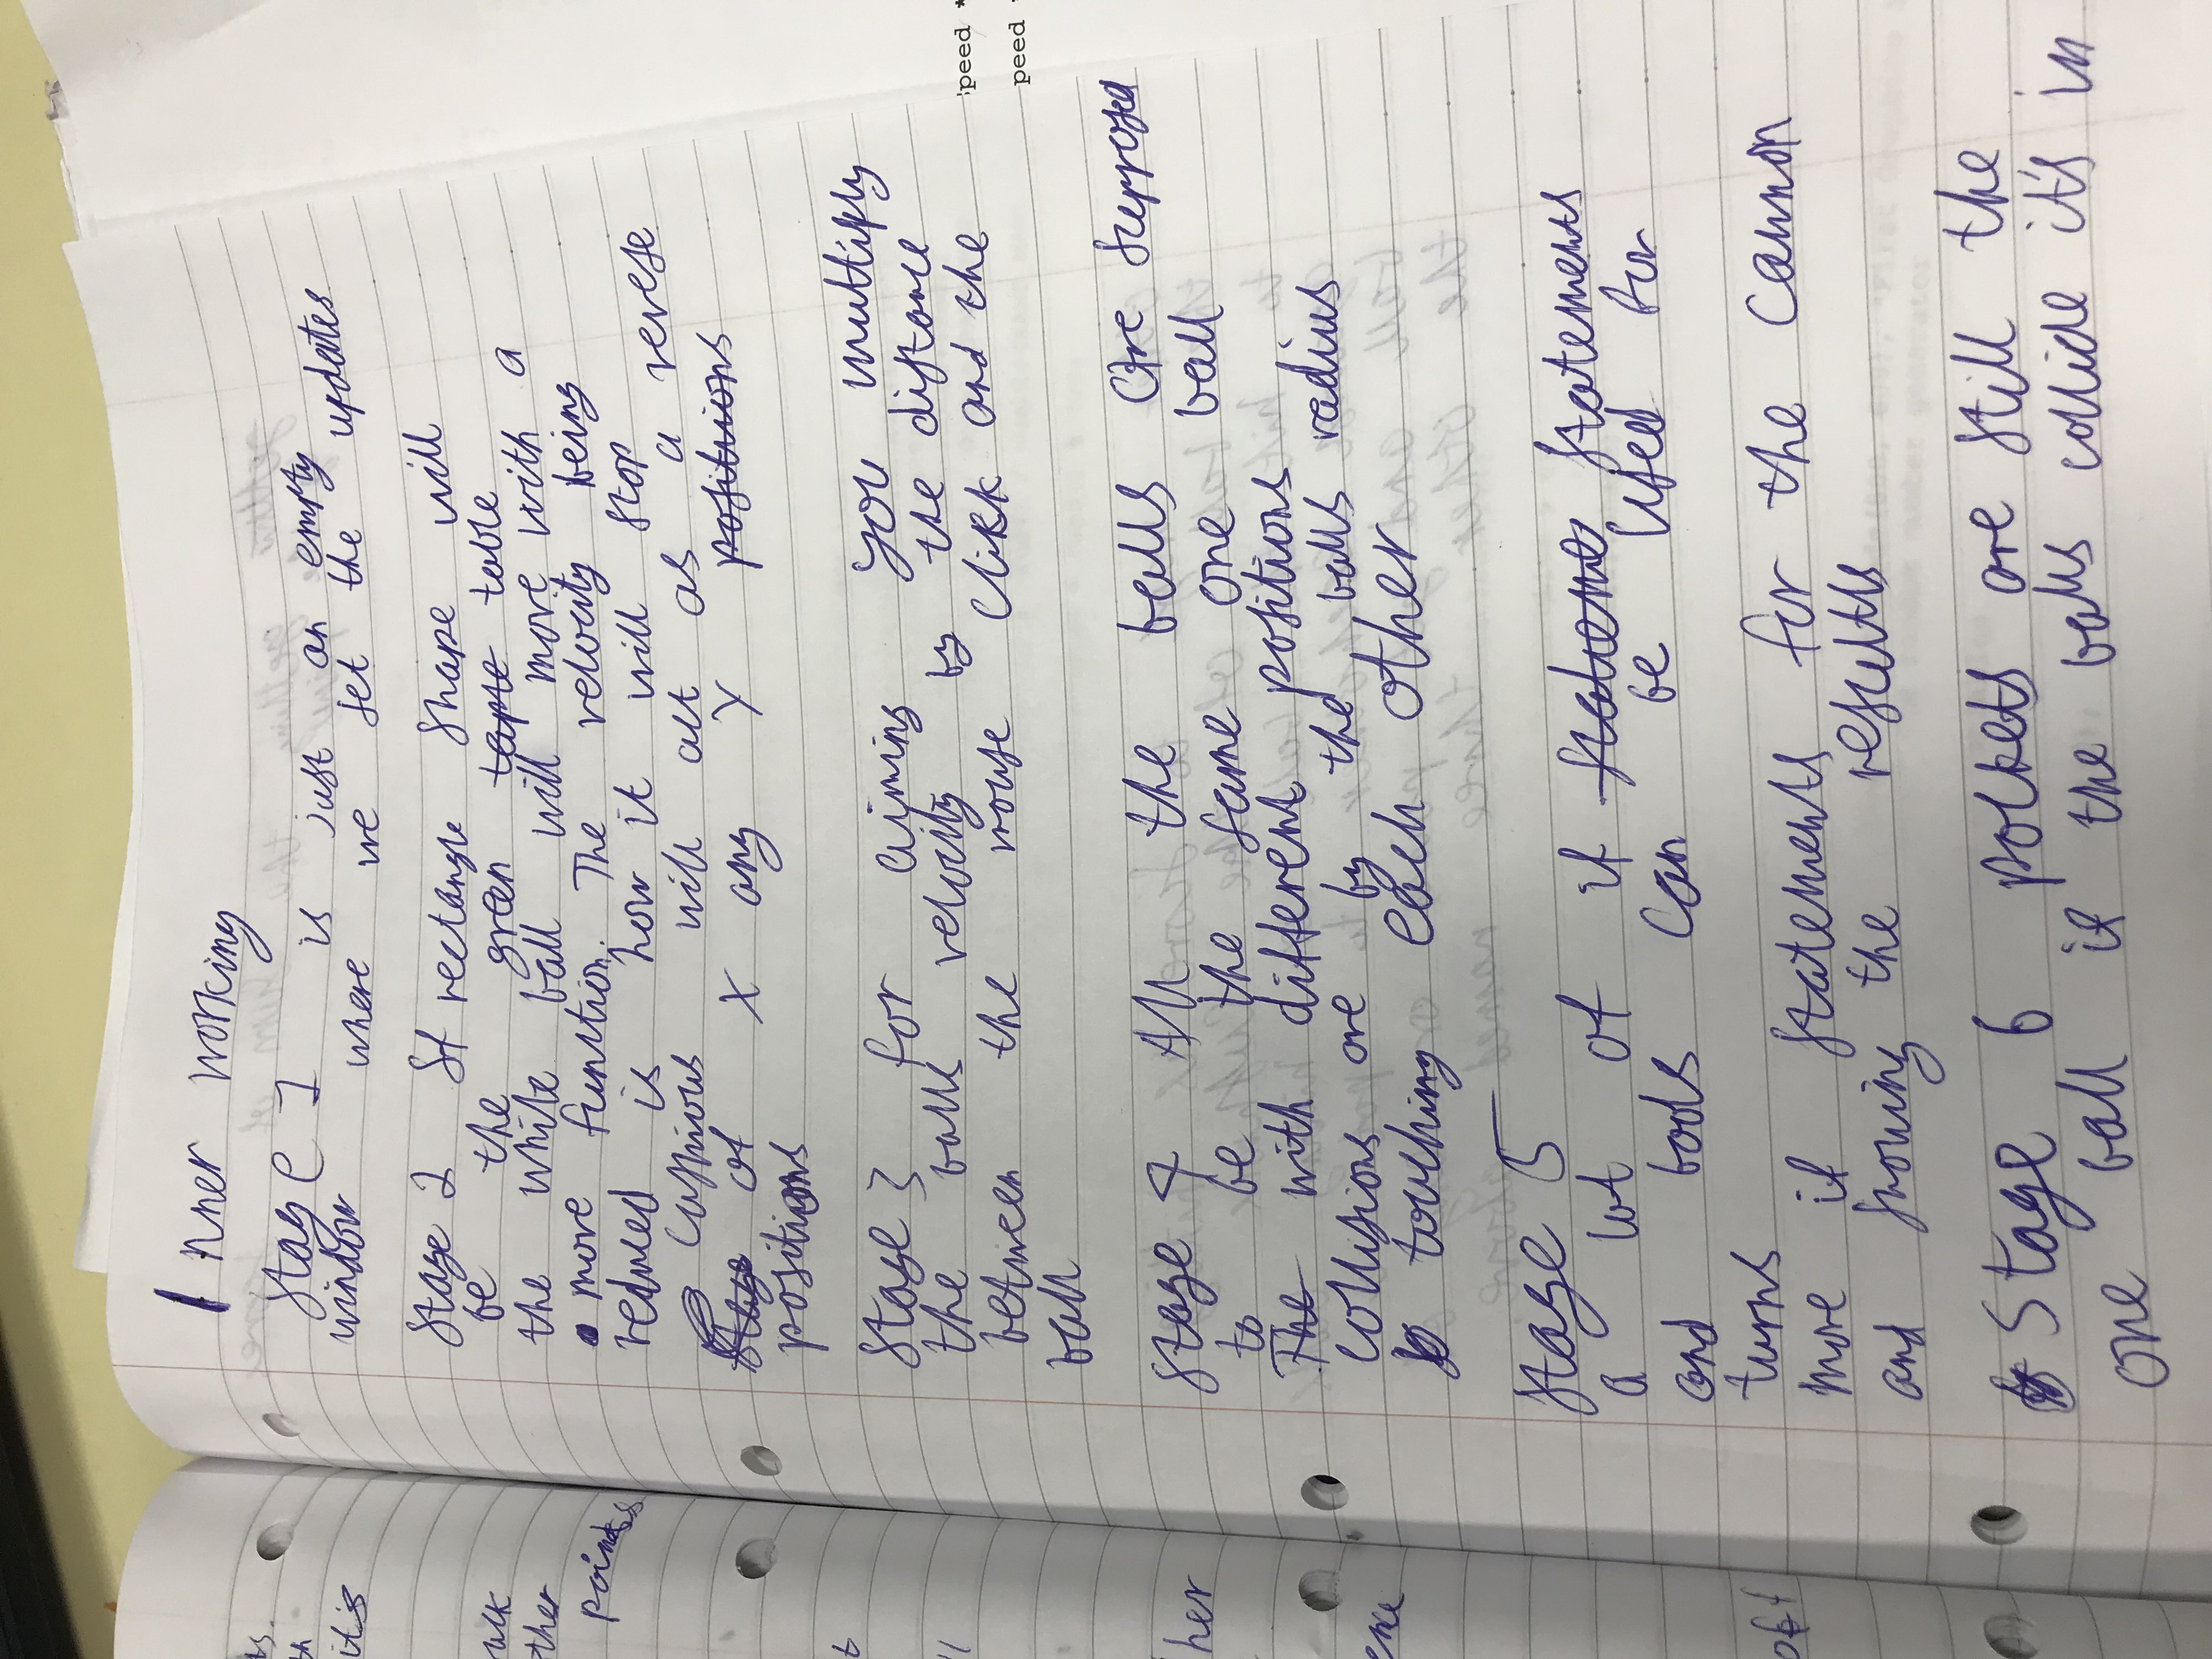 Inner working
Stage 1 is just an empty
window where we set the updates
Stage 2 Sf rectangle shape will
be the green table
the white ball will move with a
move function. The velocity being
reduced is how it will stop
will act as a revese
of X any Y positions
positions
Stage 3 for aiming you multiply
the balls velocity by the distance
between the mouse click and the
ball
Stage 4 All the balls are supposed
to be the same one ball
The with different positions
collisions are by the balls radius
touching each other
Stage 5
a lot of if stateme statements
and bools can be used for
turns
more if statements for the cannon
and showing the results
Stage 6 pockets are still the
one ball if the balls collide it's in
ts.
it's
ther
points
her
peed *
peed